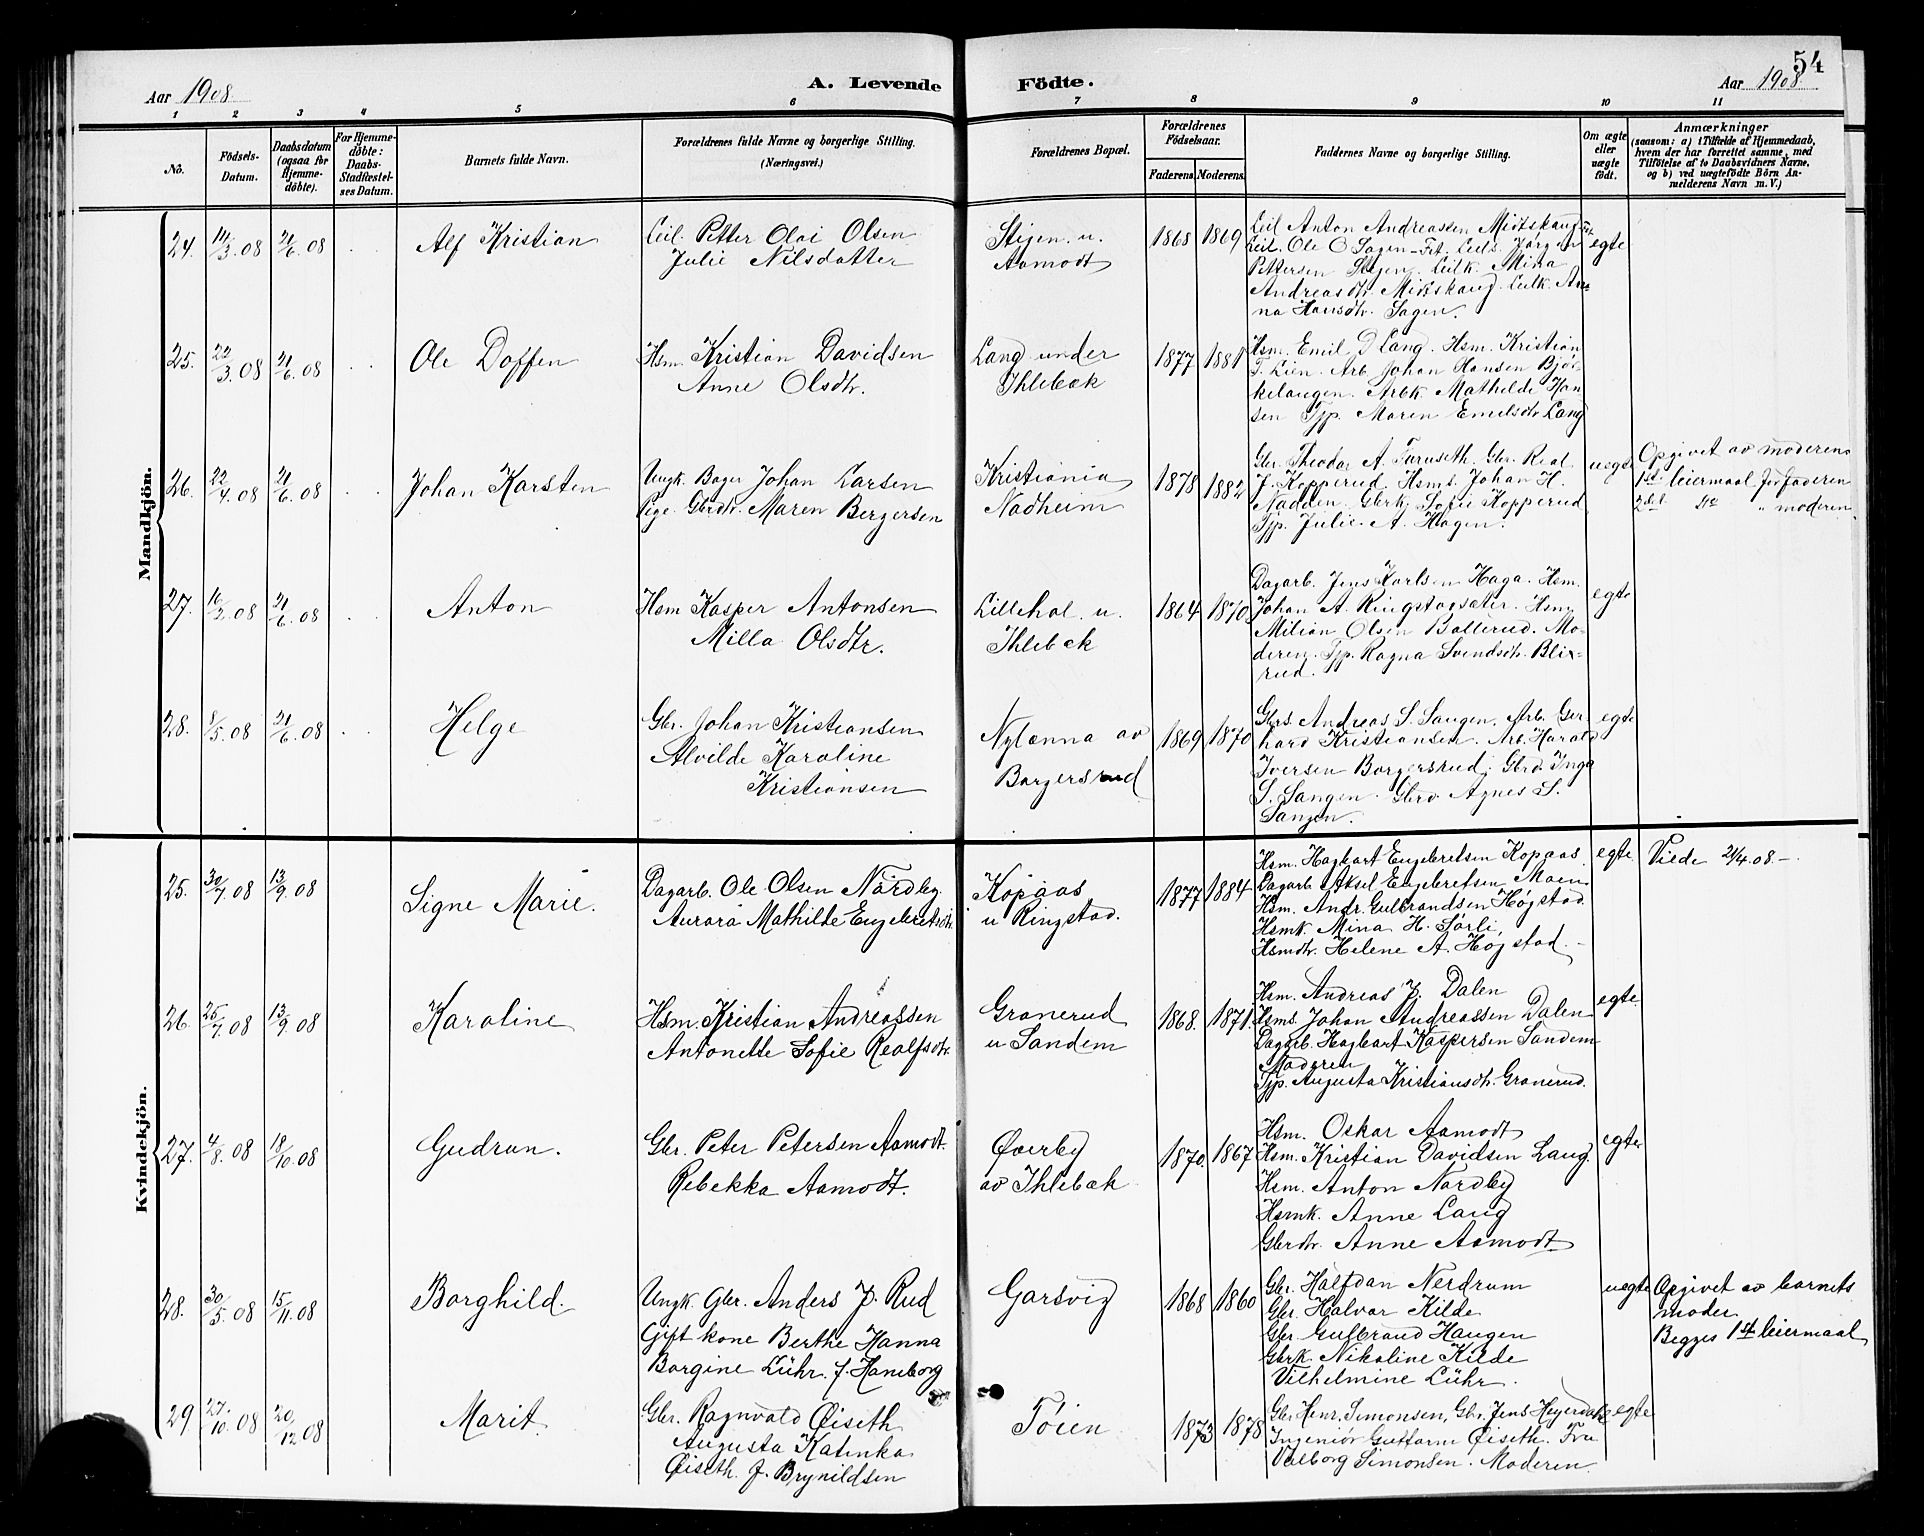 54
Aar 1908
A. Levende Födte.
Aar 1908
1 2 3 4 5 6 7 8 9 10 11
No.
Födsels-Datum.
Daabsdatum (ogsaa for Hjemme-döbte).
For Hjemme-döbte: Daabs-Stadfæstel-ses Datum.
Barnets fulde Navn.
Forældrenes fulde Navne og borgerlige Stilling.
(Næringsvei.)
Forældrenes Bopæl.
Forældrenes Födselsaar.
Faderens. Moderens.
Faddernes Navne og borgerlige Stilling.
Om ægte eller uægte födt.
Anmærkninger
(saasom: a) i Tilfælde af Hjemmedaab,
hvem der har forrettet samme, med
Tilföielse af to Daabsvidners Navne,
og b) ved uægtefödte Börn An-
melderens Navn m. V.)
Mandkjön.
24. 14/3.08 21/6.08 Alf Kristian
Leil. Petter Olai Olsen
Julie Nilsdatter
Stigen u.
Aamodt
1868 1869
Leil Anton Andreassen Midtskaug
Leil. Ole O Sagen - Frt. Leils. Jørgen
Pettersen Stigen. Leilk. Mina
Andreasdtr. Midtskaug. Leilk. An-
na Hansdtr. Sagen.
egte
25. 22/3.08 21/6.08 Ole Doffen
Hsm. Kristian Davidsen
Anne Olsdtr.
Lang under
Ihlebæk
1877 1881
Hsm. Emil D Lang. Hsm. Kristian
T. Lien. Arb. Johan Hansen Bjør-
kelangen. Arbk. Mathilde Han
sen Tjp. Maren Emilsdtr Lang
26. 22/4.08 21/6.08 Johan Karsten
Ungk. Bager Johan Larsen
Pige. Gbrdtr. Maren Bergersen
Kristiania
Nadheim
1878 1882
Gbr. Theodor A. Furuseth. Gbr. Real
J. Kopperud. Hsms. Johan H.
Nadden. Gbrk. Sofie Kopperud
Tjp. Julie A. Hagen.
uegte
Opgivet av moderen
1ste leiermaal for faderen
2det do " moderen.
27. 16/2.08 21/6.08 Anton
Hsm Kasper Antonsen
Milla Olsdtr.
Lillehol u.
Ihlebæk
1864 1870
Dagarb. Jens Karlsen Haga. Hsm.
Johan A. Ringstadsæter. Hsm
Milian Olsen Ballerud. Mo-
deren. Tjp. Ragna Svendsdtr. Blix-
rud.
egte
28. 8/5.08 21/6.08 Helge
Gbr. Johan Kristiansen
Alvilde Karoline
Kristiansen
Nylænna av
Borgersrud
1869 1870
Gbrs. Andreas S. Sangen. Arb. Ger-
hard Kristiansen. Arb. Harald
Iversen Borgersrud; Gbrd. Inga
S. Sangen. Gbrd Agnes S.
Sangen.
egte
Kvindekjön.
25. 30/7.08 13/9.08 Signe Marie.
Dagarb. Ole Olsen Nordby.
Aurora Mathilde Engebretsdtr.
Kopaas
u Ringstad.
1877 1884
Hsm. Hagbart Engebretsen Kopaas
Dagarb Aksel Engebretsen Moen
Hsm. Andr. Gulbrandsen Høgstad.
Hsmk. Mina H. Sørli,
Hsmdtr. Helene A. Høgstad. -
egte
Viede 21/4.08. -
26. 25/7.08 13/9.08 Karoline
Hsm. Kristian Andreassen
Antonette Sofie Realfsdtr.
Granerud
u Sandem
1868. 1871.
Hsm. Andreas P. Dalen
Hsms. Johan Andreassen Dalen
Dagarb. Hagbart Kaspersen Sandem
Moderen
Tjp. Augusta Kristiansdtr. Granerud.
egte
27. 4/8.08 18/10.08 Gudrun.
Gbr. Peter Petersen Aamodt.
Rebekka Aamodt.
Øverby
av Ihlebæk
1870. 1867
Hsm. Oskar Aamodt
Hsm. Kristian Davidsen Lang.
Hsm. Anton Nordby
Hsmk. Anne Lang
Gbrdtr. Anne Aamodt
egte
28. 30/5.08 15/11.08 Borghild.
Ungk. Gbr. Anders P. Rud
Gift kone Berthe Hanna
Borgine Lühr. f. Haneborg
Garsvig
1868 1860
Gbr. Halfdan Nerdrum
Gbr. Halvor Kilde
Gbr Gulbrand Haugen
Gbrk. Nikoline Kilde
Vilhelmine Lühr.
uegte
Opgivet av barnets
moder
Begges 1ste leiermaal
29 27/10.08 20/12 08 Marit.
Gbr. Ragnvald Øiseth
Augusta Katinka
Øiseth. f. Brynildsen
Tøien
1873 1878
Gbr Henr. Simonsen, Gbr. Jens Heyerdahl
Ingeniør Guttorm Øiseth. Fru
Valborg Simonsen. Moderen.
egte